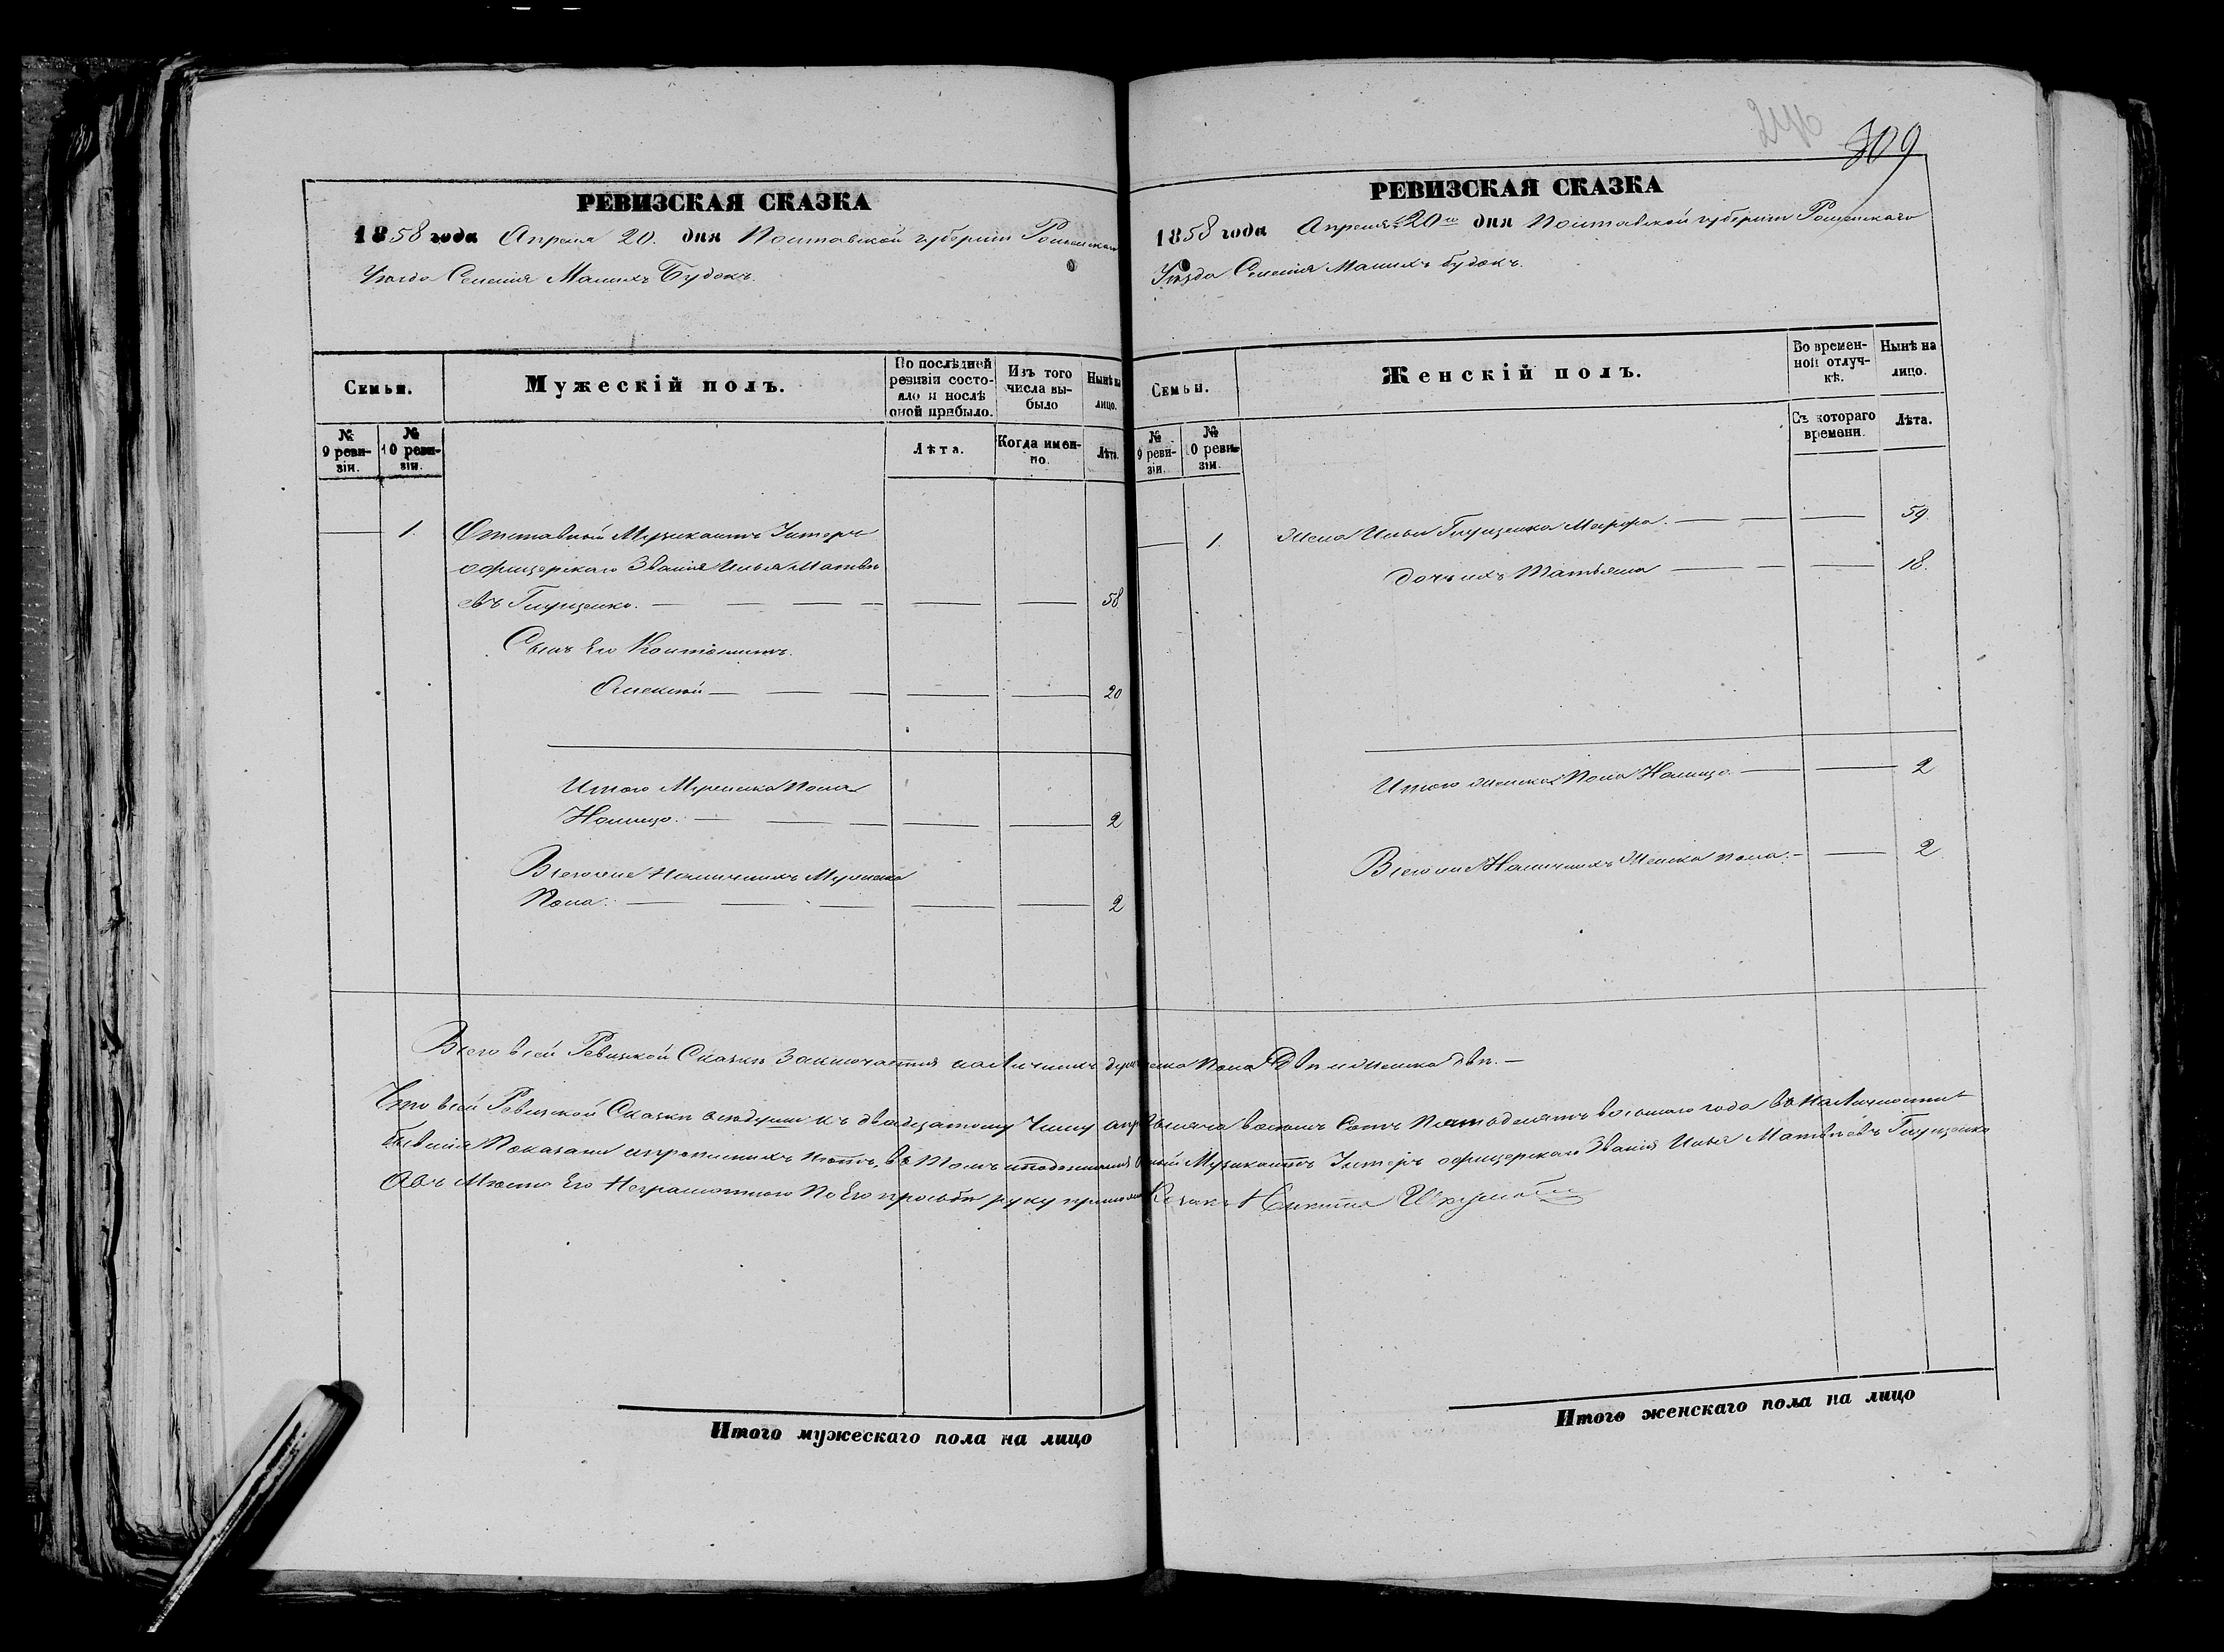 246
309
РЕВИЗСКАЯ СКАЗКА
1858 года Апреля 20. дня Полтавской губерніи Роменскаго
Уѣзда Селенія Малихъ Будокъ.
Семьи.
Мужескій полъ.
По послѣдней ревизіи состояло и послѣ оной прибыло.
Изъ того числа выбыло
Нынѣ на лицо.
№ 9 ревизіи.
№ 10 ревизіи.
Лѣта.
Когда именно.
Лѣта.
1. Отставный Музикантъ Унтеръ
офицерскаго Званія Илья Матвѣ
евъ Глущенко. 58
Сынъ Его
Алексѣй 20
Итого Мужеска Пола
Налицо. 2
Всего Наличнихъ Мужеска
Пола. 2
РЕВИЗСКАЯ СКАЗКА
1858 года Апреля 20 го дня Полтавской губерніи Роменскаго
Уѣзда Селенія Малихъ Будокъ.
Семьи.
Женскій полъ.
Во временной отлучкѣ.
Нынѣ на лицо.
№ 9 ревизіи.
№ 10 ревизіи.
Съ котораго времени.
Лѣта.
1. Жена Ильи Глущенка Марфа. 59.
дочь ихъ Татьяна 18.
Итого Женска Пола Налицо. 2
Всего Наличнихъ Женска пола. 2
Всего в сей Ревизкой Сказки Заключается наличнихъ Пола Двѣ и Женска двѣ.
Что в сей Ревизкой Сказки къ двадцатому Числу восемъ Сотъ Пятьдесятъ восьмого года въ Наличности
Показани нетъ, въ Томъ Музикантъ Унтеръ офицерскаго Званія Илья Матвѣевъ Глущенко
Авъ Мѣсто Его Неграмотного По Его прозьбѣ руку Козакъ Никита
Итого мужескаго пола на лицо
Итого женскаго пола на лицо